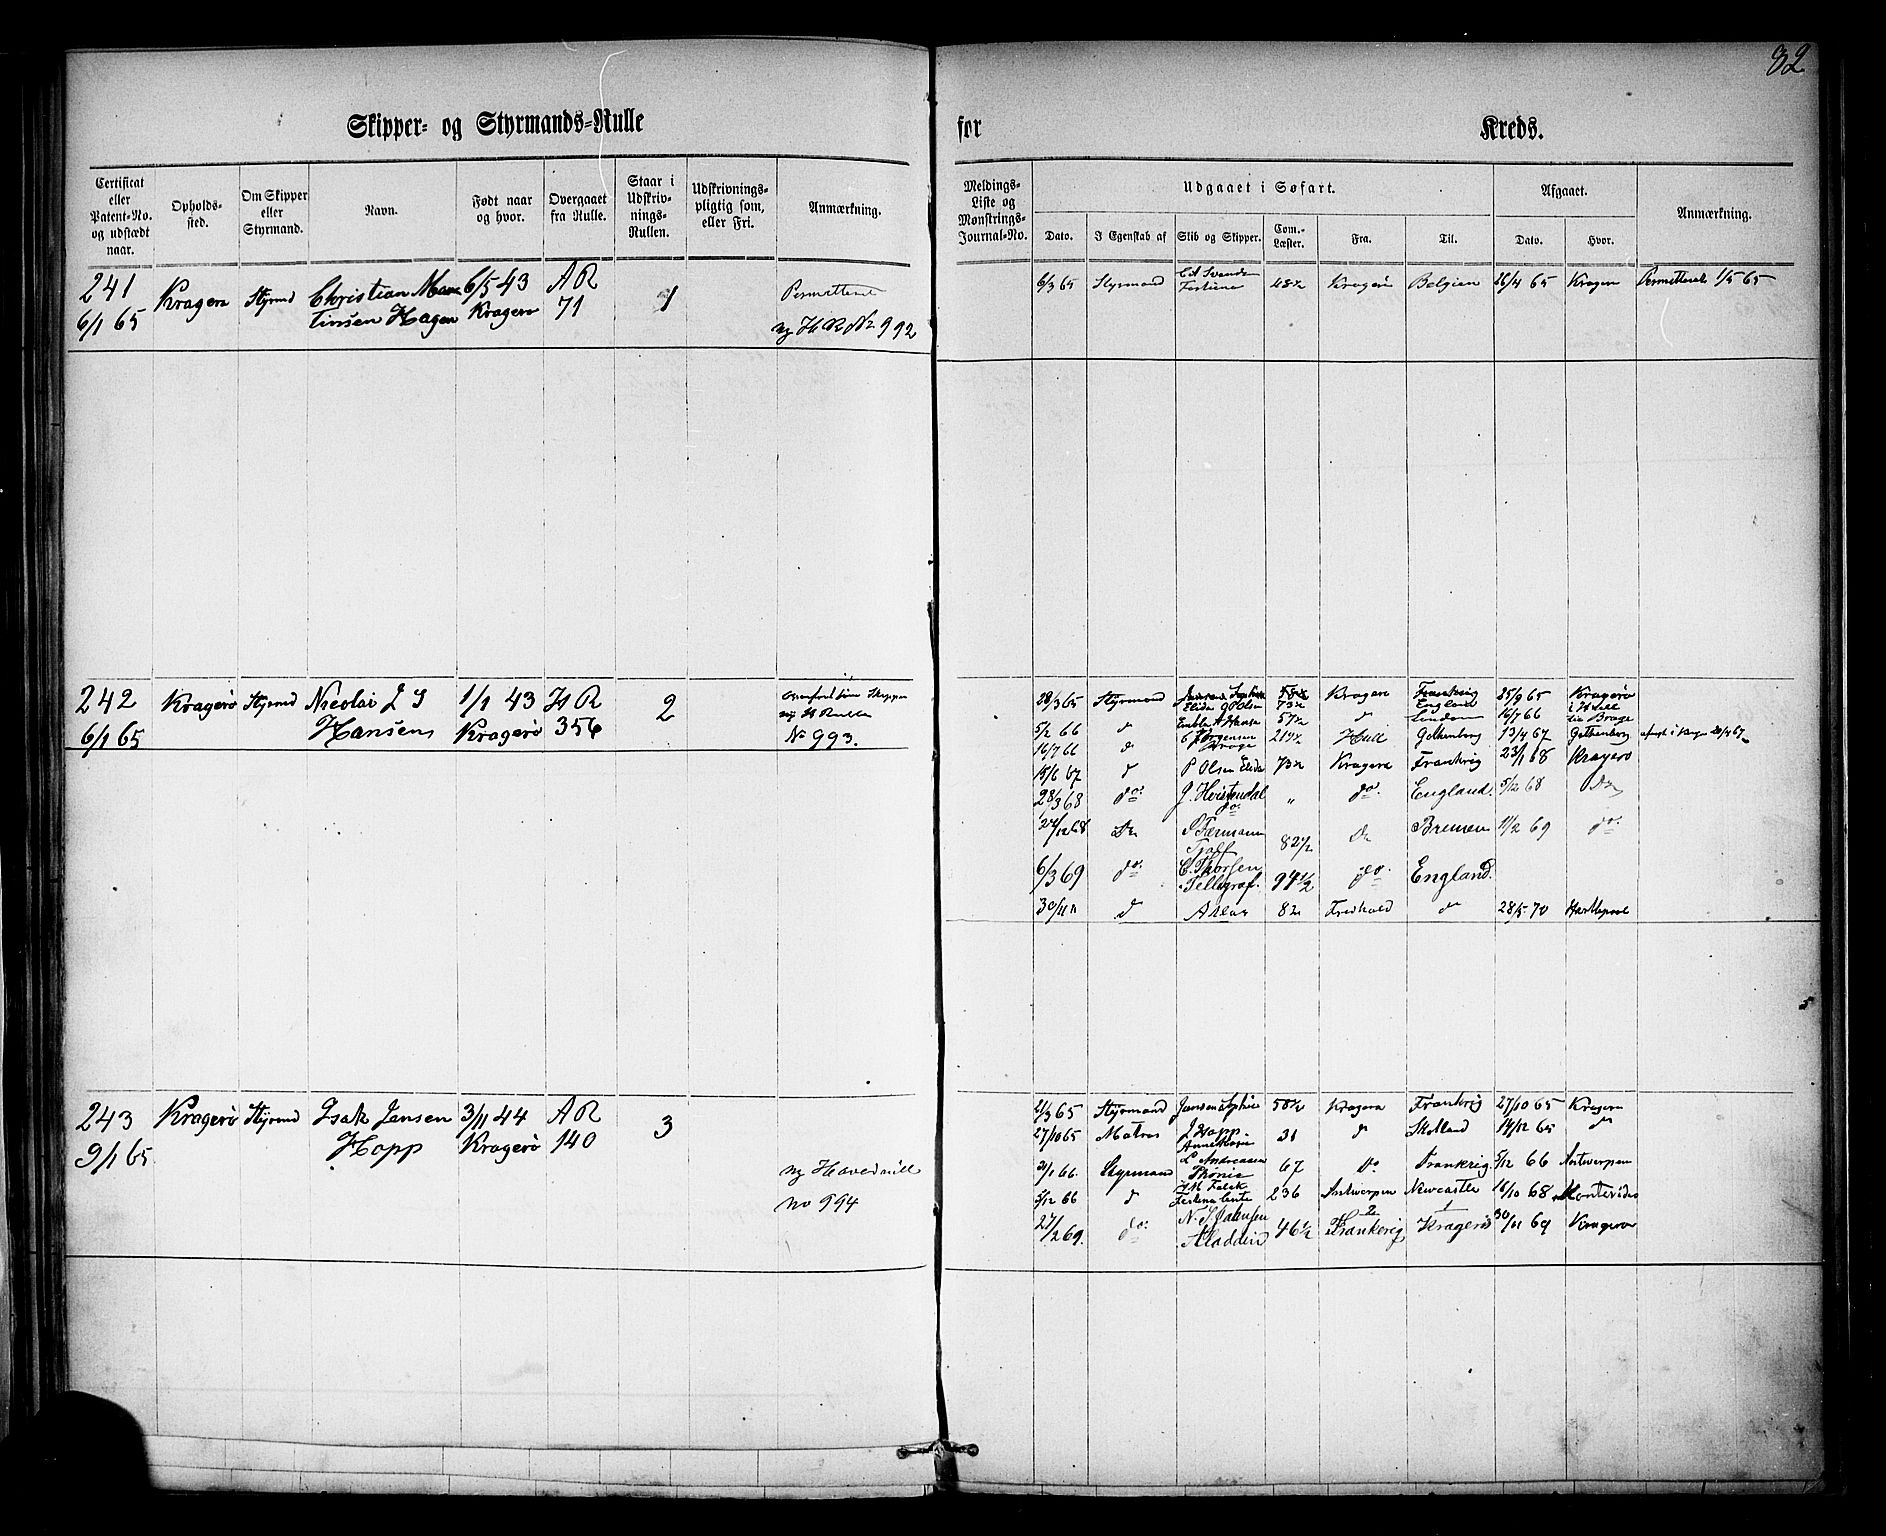 32
Skipper- og Styrmands-Rulle
for Kreds.
Certificat eller Patent-No. og udstædt naar.
Opholds-sted.
Om Skipper eller Styrmand.
Navn.
Født naar og hvor.
Overgaaet fra Rulle.
Staar i Udskriv-nings-Rullen.
Udskrivnings-pligtig som, eller Fri.
Anmærkning.
Meldings-Liste og Mønstrings-Journal-No.
Udgaaet i Søfart.
Dato.
I Egenskab af
Skib og Skipper.
Com.-Læster.
Fra.
Til.
Afgaaet.
Dato.
Hvor.
Anmærkning.
241 Kragerø Styrmd Christian Mar 6/5 43 A R 1 Permitteret
6/1 65 tinsen Hagen Kragerø 71 ny H R No 992
6/3 65 Styrmand Fortuna 48½ Kragerø Belgien 26/4 65 Kragerø Permitteret 1/5 65
242 Kragerø Styrmd Nicolai J S 1/1 43 H R 2
6/1 65 Hansen Kragerø 356 ny H Rulle
No 993.
28/3 65 Styrmand Kragerø Frankrig 25/9 65 Kragerø
Elida G Olsen 73½ England
5/2 66 d 57½ d London 16/7 66 Brage
16/7 66 d C Jørgensen Brage 217½ Hull Gothenborg 13/4 67 Gothenborg
15/6 67 d P Olsen Elida 73½ Kragerø Frankrig 23/1 68 Kragerø
28/3 68 do J. Heistendal do " do England 5/12 68 Do
24/12 68 Do P Færmann 82½ Do Bremen 11/2 69 do
6/3 69 do C. Thorsen Tellegraf. 94½ do England.
30/11 " d 82 Fredhald do 28/5 70 Hartlepool
243 Kragerø Styrmd Isak Jansen 3/11 44 A R 3
9/1 65 Hopp Kragerø 140
ny Hovedrulle
no 994
2/3 65 Styrmand Jansen Sophie 58½ Kragerø Frankrig 27/10 65 Kragerø
27/10 65 Matros J Hopp 31 d Skotland 14/12 65 do
Anne Marie
21/1 66 Styrmand L Andreasen 67 Do Frankrig 5/12 66 Antwerpen
Phønix
5/12 66 d H M Falck 236 Antwerpen Newcastle 16/10 68 Montevideo
Festina Lente
27/2 69. do N. S. Jakobsen 46½ Frankerig 2 Kragerø 1 30/11 69 Kragerø
Aladdin